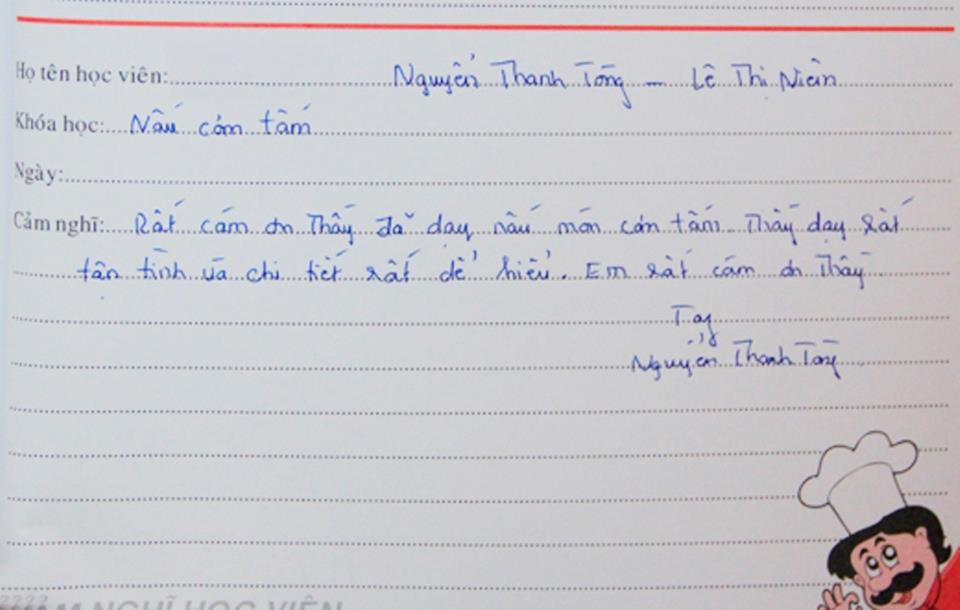 Họ tên học viên: Nguyễn Thanh Tòng - Lê Thị Niên
Khóa học: Nấu cơm tấm
Ngày:
Cảm nghĩ: Rất cám ơn Thầy đã dạy nấu món cơm tấm. Thầy dạy rất
tận tình và chi tiết rất dể hiểu. Em rất cám ơn Thầy
Nguyễn Thanh Tòng
NGHĨ HỌC VIÊN